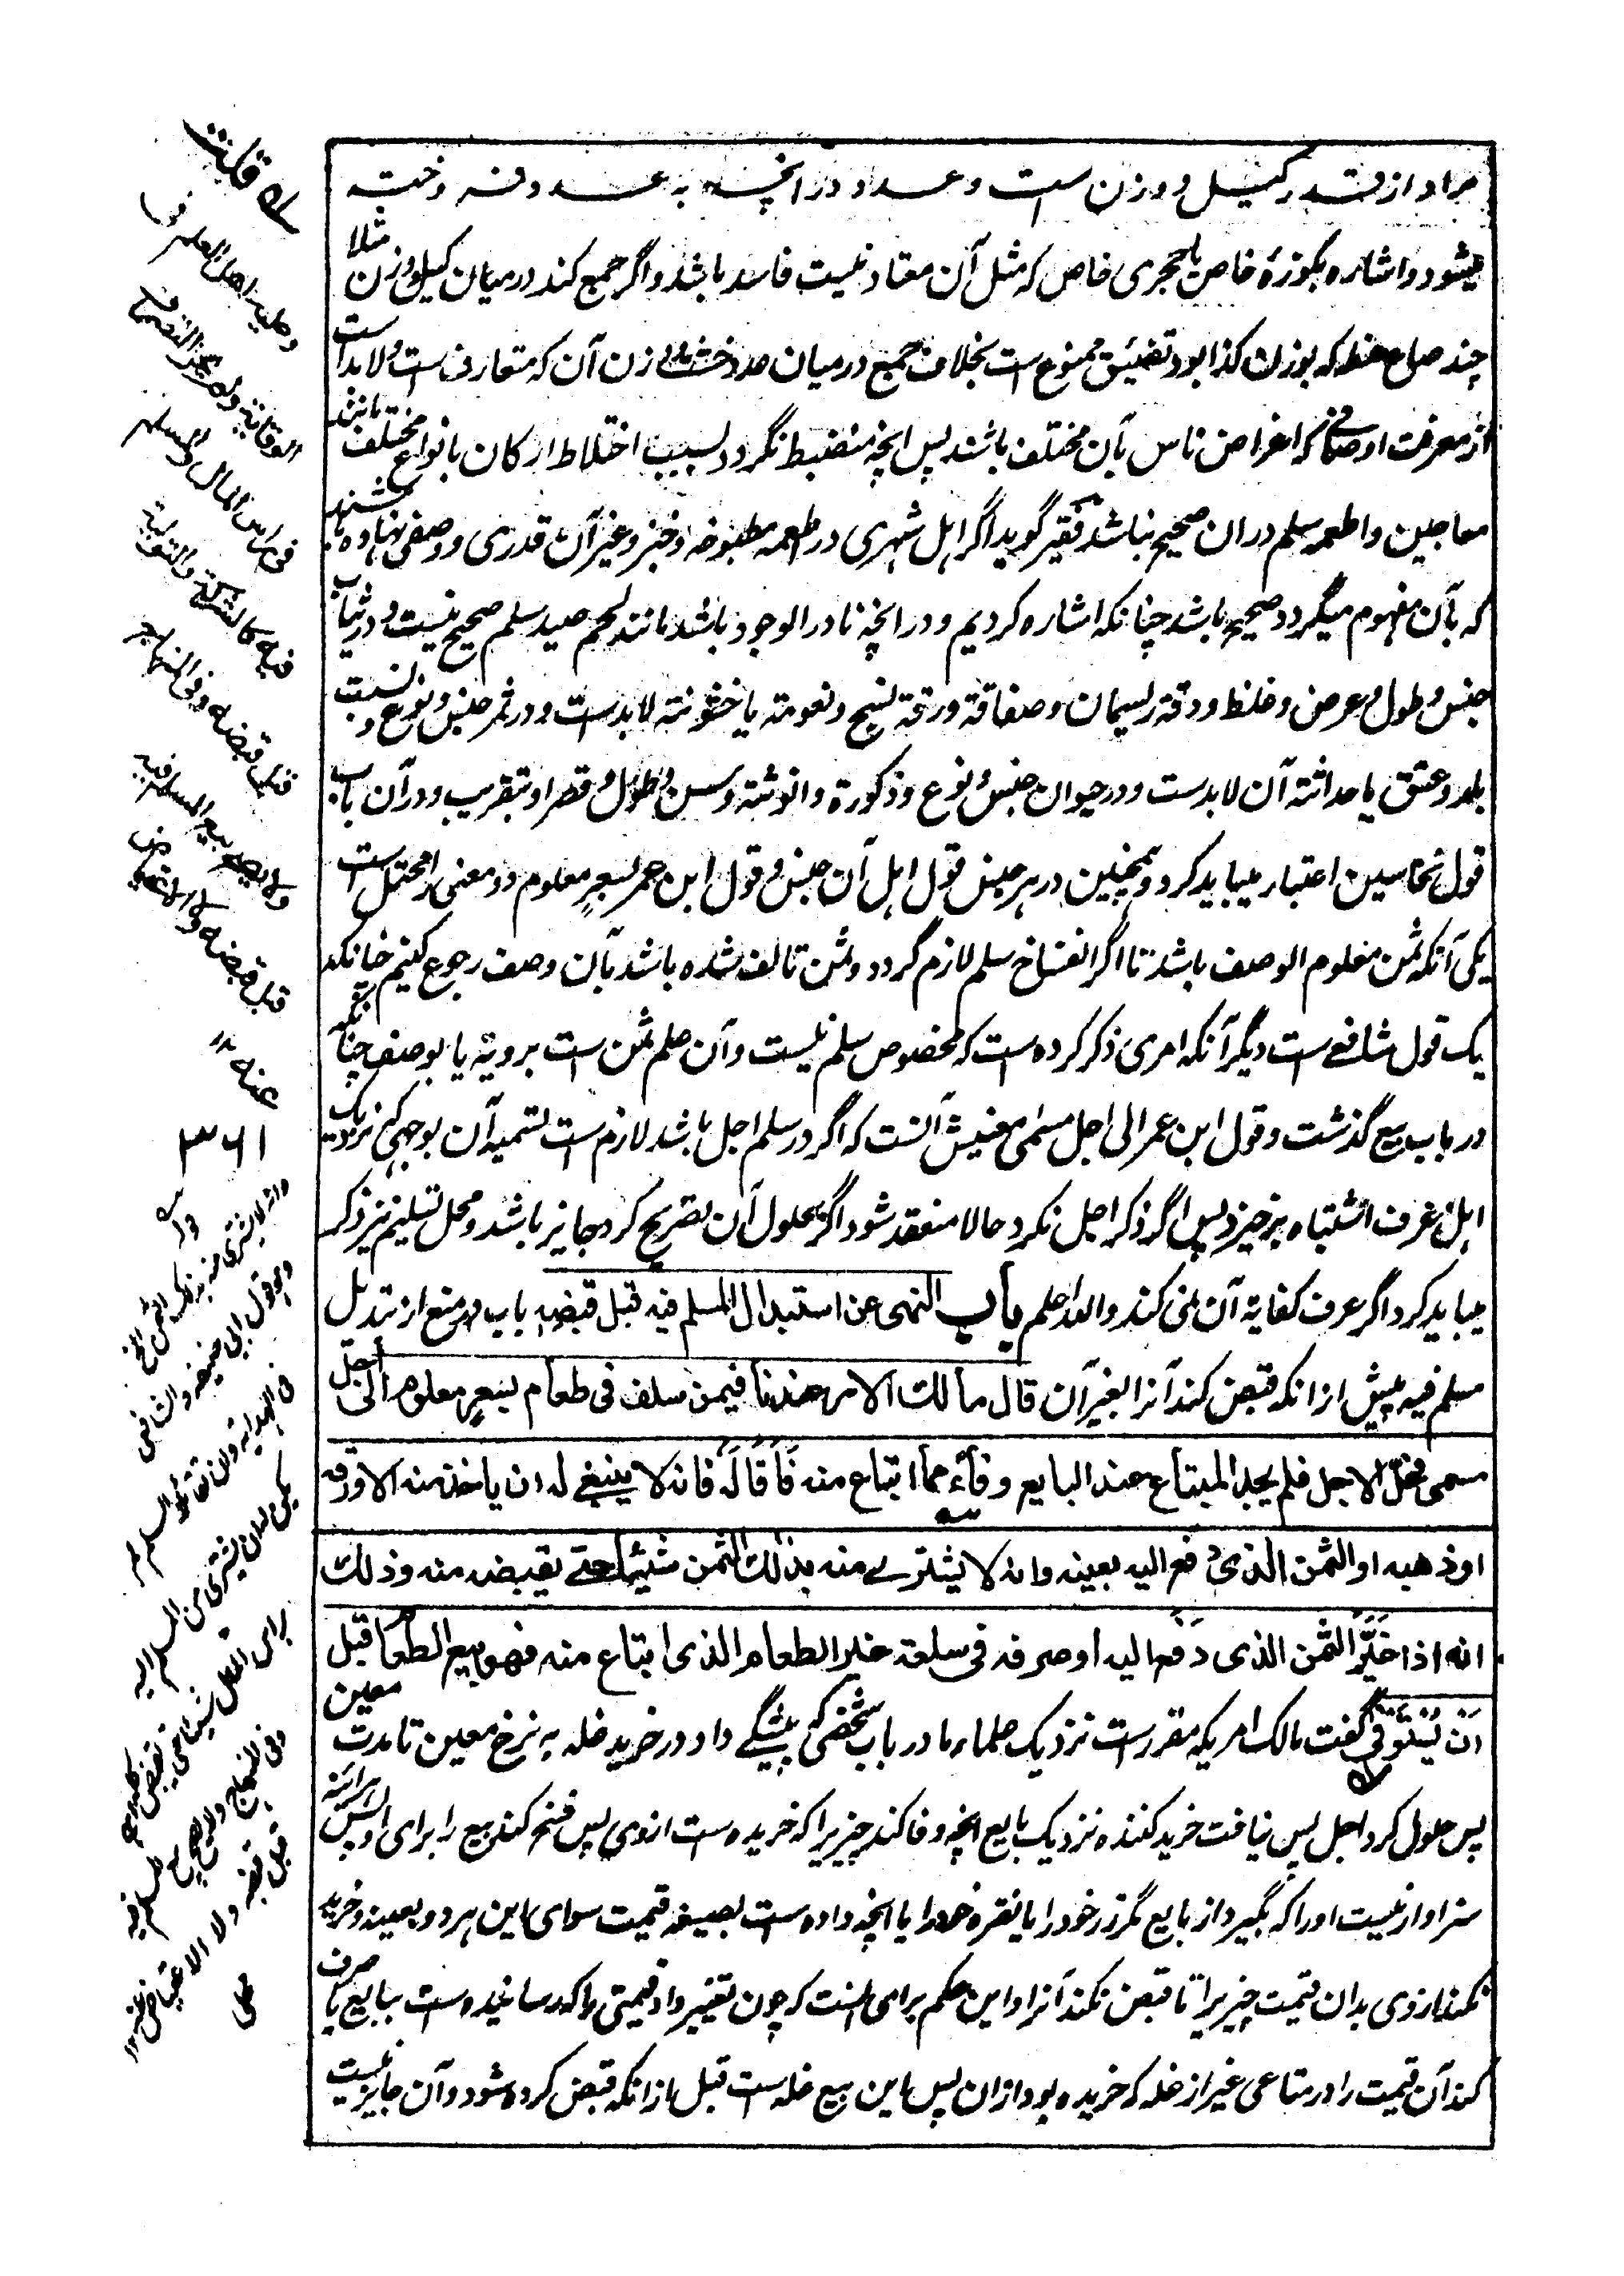 مراد از قدر کیل و وزن ست و عدد در انچه به عدد فروخته
میشود و اشاره بکوزۀ خاص یا حجری خاص که مثل آن معتاد نیست فاسد باشد و اگر جمع کند در میان کیل و وزن مثلا
چند صاع حنطه که بوزن کذا بود تضییق ممنوع ست بخلاف جمع در میان عدد خشت و وزن آن که متعارف ست و لابد است
از معرفت اوصافی که اغراض ناس بآن مختلف باشند پس انچه منضبط نگردد بسبب اختلاط ارکان بانواع مختلف مانند
معاجین و اطعمه سلم در ان صحیح نباشد فقیر گوید اگر اهل شهری در اطعمه مطبوخه و خبز و غیر آن قدری و وصفی نهاده باشند
که بآن مفهوم میگردد صحیح باشد چنانکه اشاره کردیم و در انچه نادر الوجود باشد مانند لحم صید سلم صحیح نیست و در ثیاب
جنس و طول و عرض و غلظ و دقة ریسمان و صفاقة و رقة نسج و نعومته یا خشونته لابدست و در ثمر جنس و نوع و نسبت
بلد و عتق یا حداثته آن لابدست و در حیوان جنس و نوع و ذکورة و انوثته و سن و طول و قصر او بتقریب و در آن باب
قول نخاسین اعتبار میباید کرد و همچنین در هر جنس قول اهل آن جنس و قول ابن عمر بسعرٍ معلوم دو معنی را محتمل است
یکی آنکه ثمن معلوم الوصف باشد تا اگر انفساخ سلم لازم گردد و ثمن تالف شده باشد بآن وصف رجوع کنیم چنانکه
یک قول شافعے ست دیگر آنکه امری ذکر کرده ست که مخصوص سلم نیست و آن علم ثمن ست برویة یا بوصف چنانکه
در باب بیع گذشت و قول ابن عمر الی اجل مسمی معنیش آنست که اگر در سلم اجل باشد لازم ست تسمیه آن بوجهی که نزدیک
اهل عرف اشتباه برخیزد پس اگر ذکر اجل نکرد حالا منعقد شود اگر بحلول آن تصریح کرد جایز باشد و محل تسلیم نیز ذکر
میباید کرد اگر عرف کفایة آن نمی کند والله اعلم باب النهی عن استبدال المسلم فیه قبل قبضه باب در منع از تبدیل
مسلم فیه پیش از انکه قبض کند آنرا بغیر آن قال مالک الامر عندنا فیمن سلف فی طعام بسعرٍ معلوم الی أجل
مسمی فحلّ الاجل فلم یجد المبتاع عند البایع وفآءً مما ابتاع منه فَأَقَالَه فانه لا ینبغی له ان یاخذ منه الا ورقه
او ذهبه او الثمن الذی دفع الیه بعینه وانه لا یشتری منه بذلک الثمن شیئًا حتے یقبضه منه وذلک
انه اذا اخذ غَیَّرَ الثمن الذی دَفع الیه او صرفه فی سلعة غیر الطعام الذی ابتاع منه فهو بیع الطعام قبل
اَن یُسْتَوْفٰی گفت مالک امریکه مقررست نزدیک علماء ما در باب شخصی که پیشگے داد در خرید غله به نرخ معین تا مدت معین
پس حلول کرد اجل پس نیافت خرید کننده نزدیک بایع انچه وفا کند چیزیرا که خریده ست ازوی پس فسخ کند بیع را برای او پس هرآئنه
سزاوار نیست او را که بگیرد از بایع مگر زر خود را یا نقره خود را یا انچه داده ست بصیغه قیمت سوای این هر دو بعینه و خرید
نکند ازوی بدان قیمت چیزیرا تا قبض نکند آنرا و این حکم برای آنست که چون تغییر داد قیمتی را که رسانیده ست ببایع یا صرف
کند آن قیمت را در متاعی غیر از غله که خریده بود ازان پس این بیع غله ست قبل ازانکه قبض کرده شود و آن جایز نیست
قلت
وعلیه اهل العلم فی
الوقایة ولم یجز التصرف
فی راس المال والمسلم
فیه کالشرکة والتولیة
قبل قبضه وفی المنهاج
ولا یصح بیع المسلم فیه
قبل قبضه ولا الاعتیاض
عنه ۱۲
۳۶۱
وانه لا یشتری منه بذلک الثمن الخ
وهو قول ابی حنیفه والشافعی
فی الهدایة وان تقایلا السلم لم
یکن له ان یشتری من المسلم الیه
براس المال شیئا حتی یقبض کله
وفی المنهاج ولا یصح بیع المسلم فیه
قبل قبضه ولا الاعتیاض عنه ۱۲